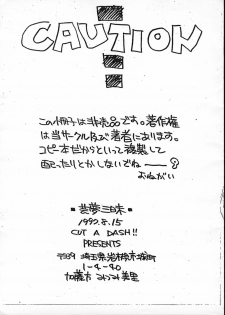 CAUTION
この冊子は非売品です。著作権
は当サークル及び著者にあります。
コピー本だからといって複製して
配ったりとかしないでね――?
おねがい
1992.8.15
CUT A DASH!!
PRESENTS
〒339 埼玉県岩槻市
1-4-40
加藤方